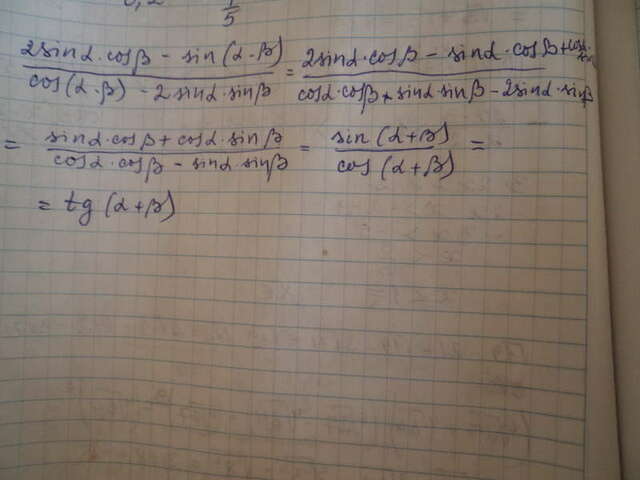 1/5
(2sinα·cosβ - sin(α-β))/(cos(α-β) - 2sinα·sinβ) = (2sinα·cosβ - sinα·cosβ + cosα·)/(cosα·cosβ + sinα·sinβ - 2sinα·sinβ)
= (sinα·cosβ + cosα·sinβ)/(cosα·cosβ - sinα·sinβ) = sin(α+β)/cos(α+β) =
= tg(α+β)